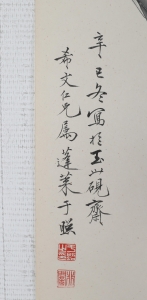 辛巳冬寫於玉山硯齋
希文仁兄属蓬莱于暎